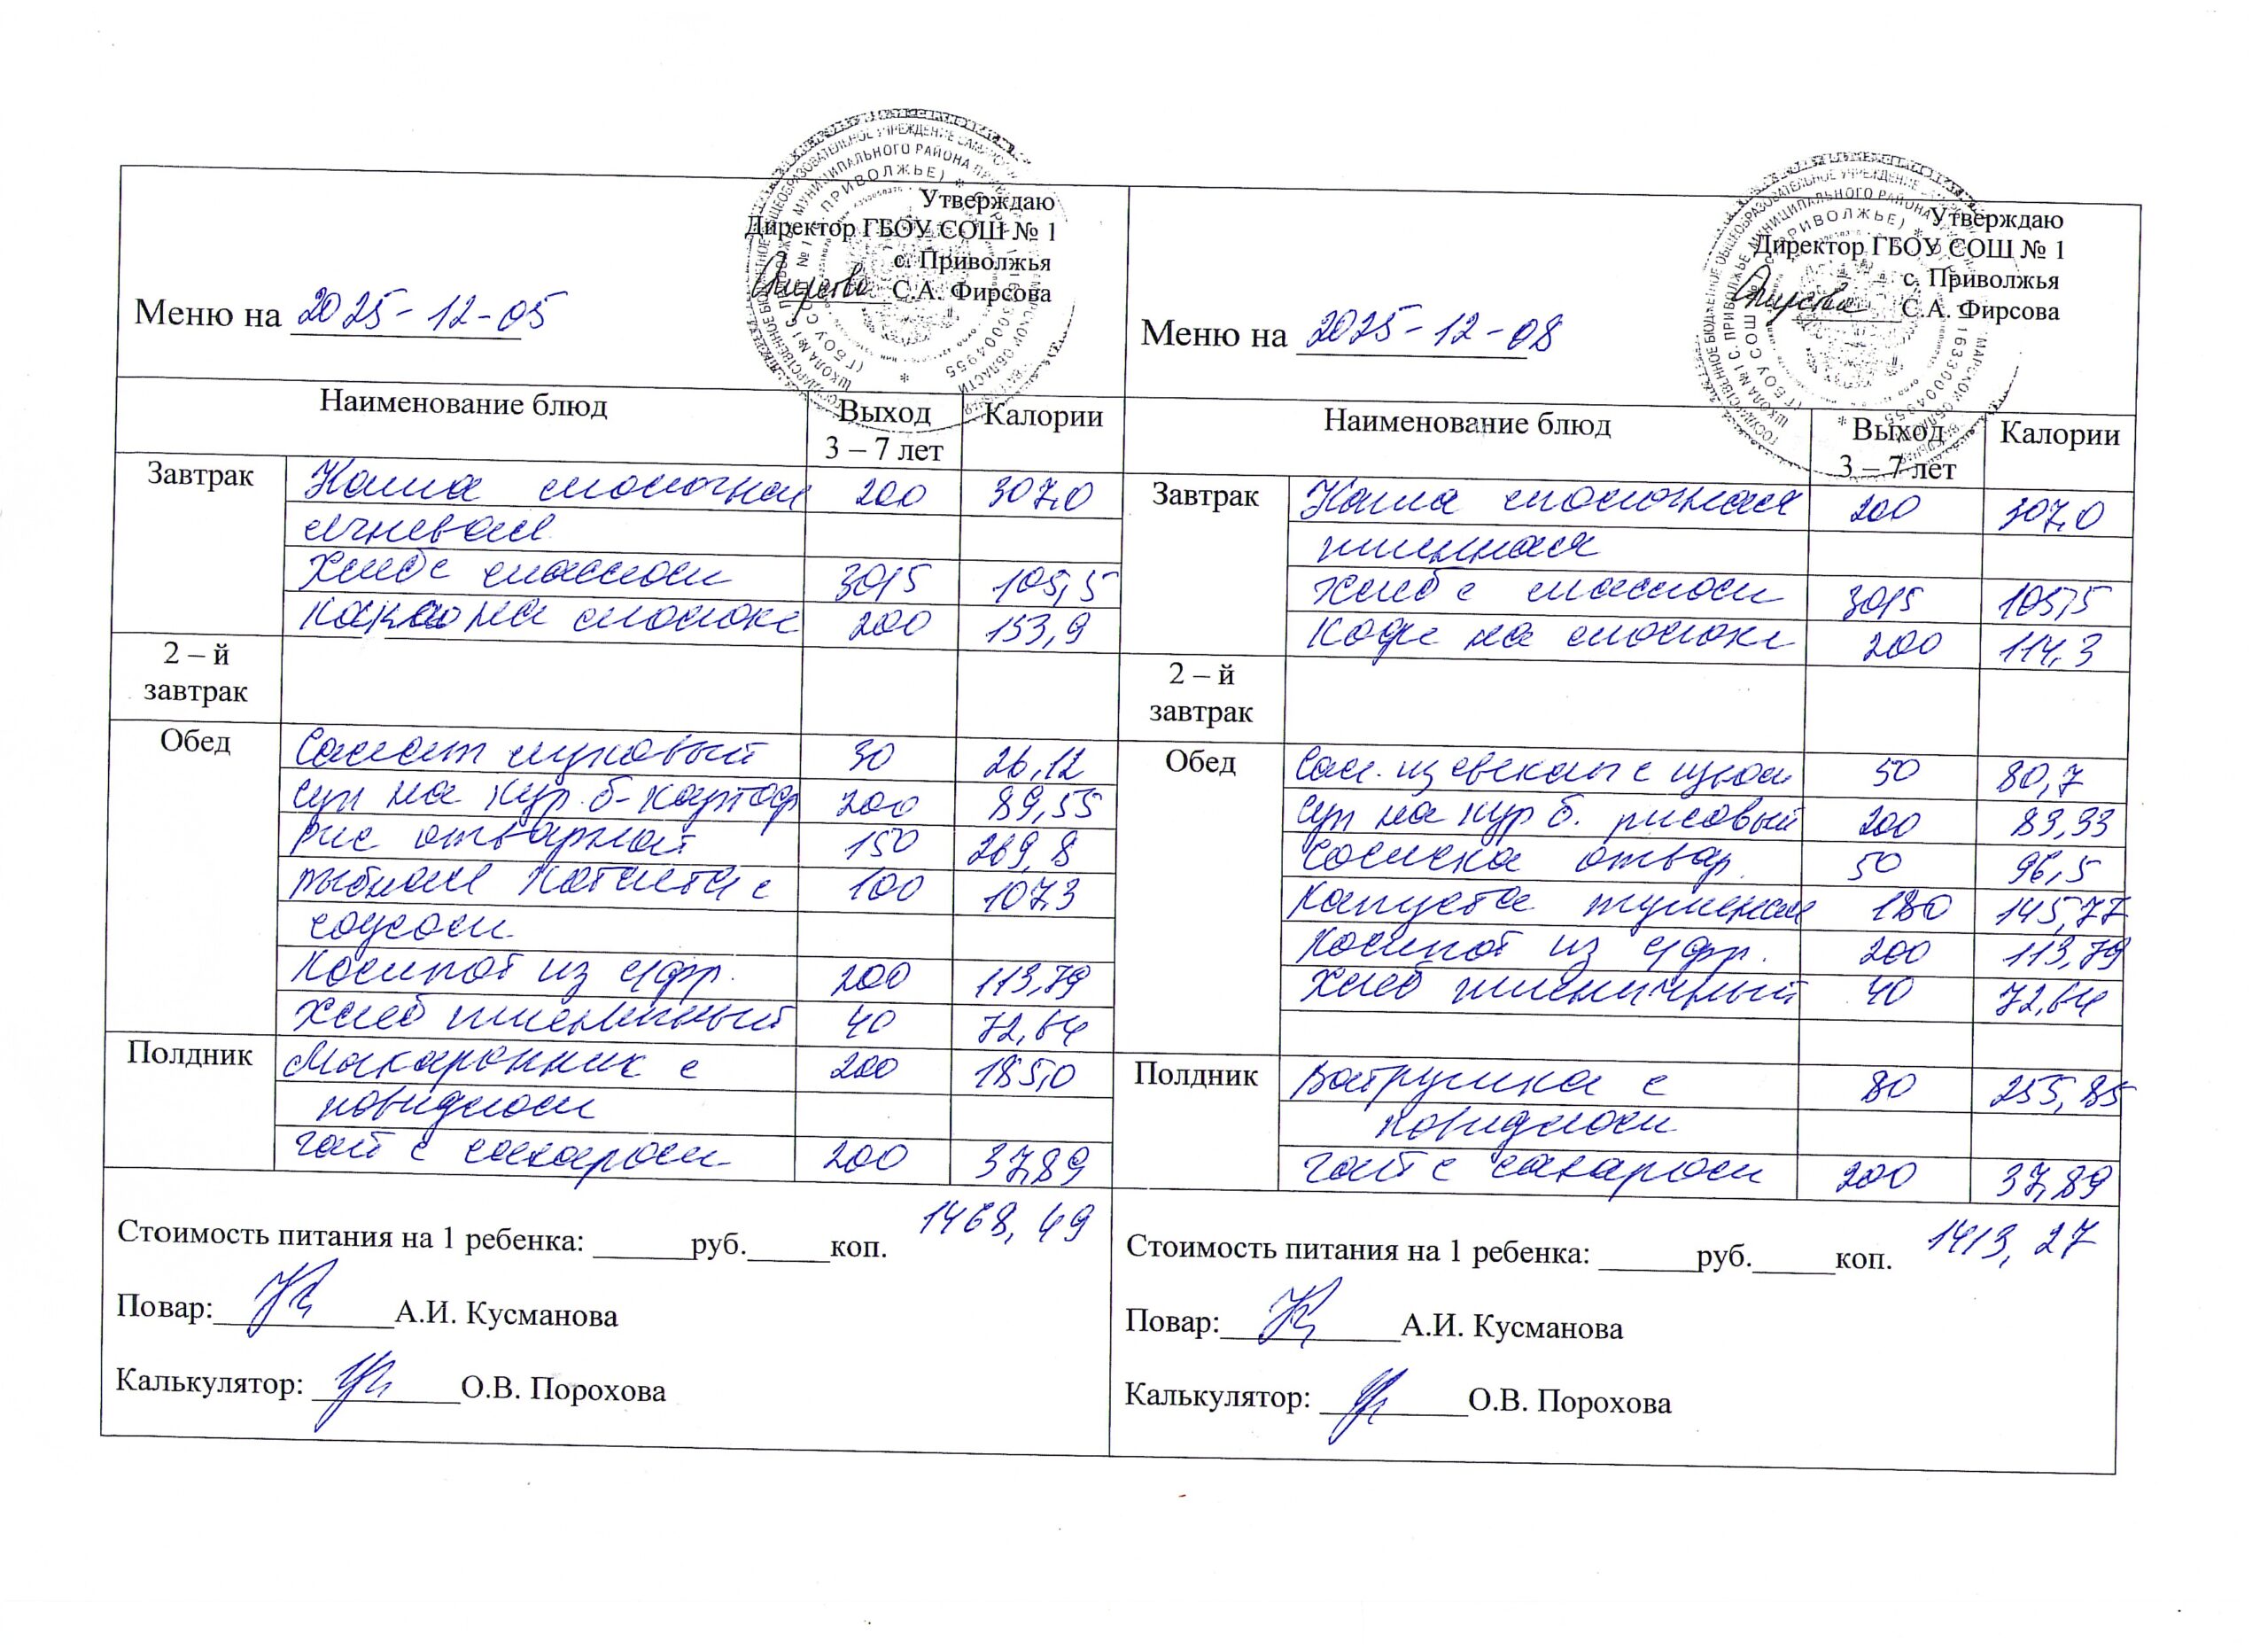 Утверждаю
Директор ГБОУ СОШ № 1
с. Приволжья
С.А. Фирсова
Меню на 2025-12-05
Наименование блюд Выход 3 – 7 лет Калории
Завтрак Каша молочная 200 307,0
ячневая
Хлеб с маслом 30/5 105,5
какао на молоке 200 153,9
2 – й завтрак
Обед Салат луковый 30 26,12
суп на кур. б-картоф 200 89,55
рис отварной 150 269,8
рыбная котлета с 100 107,3
соусом
Компот из с/фр. 200 113,79
Хлеб пшеничный 40 72,64
Полдник Макаронник с 200 185,0
повидлом
чай с сахаром 200 37,89
1468,49
Стоимость питания на 1 ребенка: ______руб._____коп.
Повар:___________А.И. Кусманова
Калькулятор: _________О.В. Порохова
Утверждаю
Директор ГБОУ СОШ № 1
с. Приволжья
С.А. Фирсова
Меню на 2025-12-08
Наименование блюд Выход 3 – 7 лет Калории
Завтрак Каша молочная 200 307,0
пшенная
хлеб с маслом 30/5 105,5
Кофе на молоке 200 114,3
2 – й завтрак
Обед Сал. из свеклы с 50 80,7
суп на кур б. рисовый 200 83,33
Сосиска отвар. 50 96,5
Капуста тушеная 180 145,77
Компот из с/фр. 200 113,79
Хлеб пшеничный 40 72,64
Полдник Ватрушка с 80 255,85
повидлом
чай с сахаром 200 37,89
1413,27
Стоимость питания на 1 ребенка: ______руб._____коп.
Повар:___________А.И. Кусманова
Калькулятор: _________О.В. Порохова